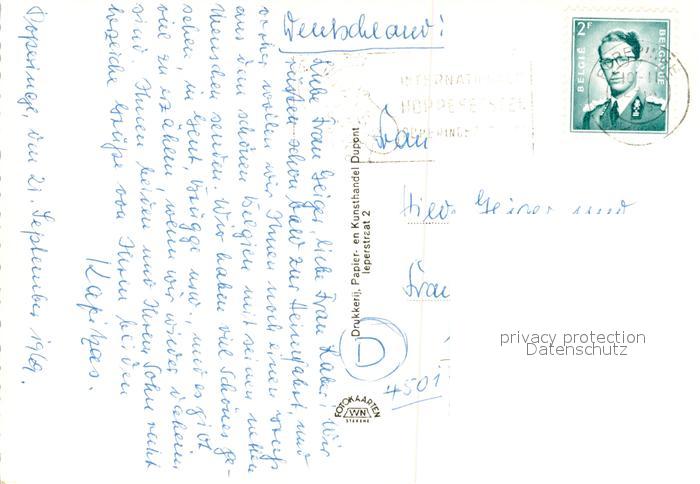 Poperinge, den 21. September 1969.
Liebe Frau Geiger, liebe Frau Huber! Wir
rüsten schon bald zur Heimfahrt, und
vorher wollen wir Ihnen noch einen Gruß
aus dem schönen Belgien mit seinen netten
Menschen senden. Wir haben viel Schönes ge-
sehen, in Gent, Brügge usw., und es gibt
viel zu erzählen, wenn wir wieder daheim
sind. Ihnen beiden und Ihrem Sohn recht
herzliche Grüße von Ihren beiden
Kapitzas.
Deutschland!
BELGIE
2F
BELGIQUE
INTERNATIONAAL
HOPPEFEEST
POPERINGE
Frau
Hilde Geiger und
Frau
D
4501
Drukkerij, Papier- en Kunsthandel Dupont
Ieperstraat 2
FOTOKAARTEN
WN
STEKENE
privacy protection
Datenschutz